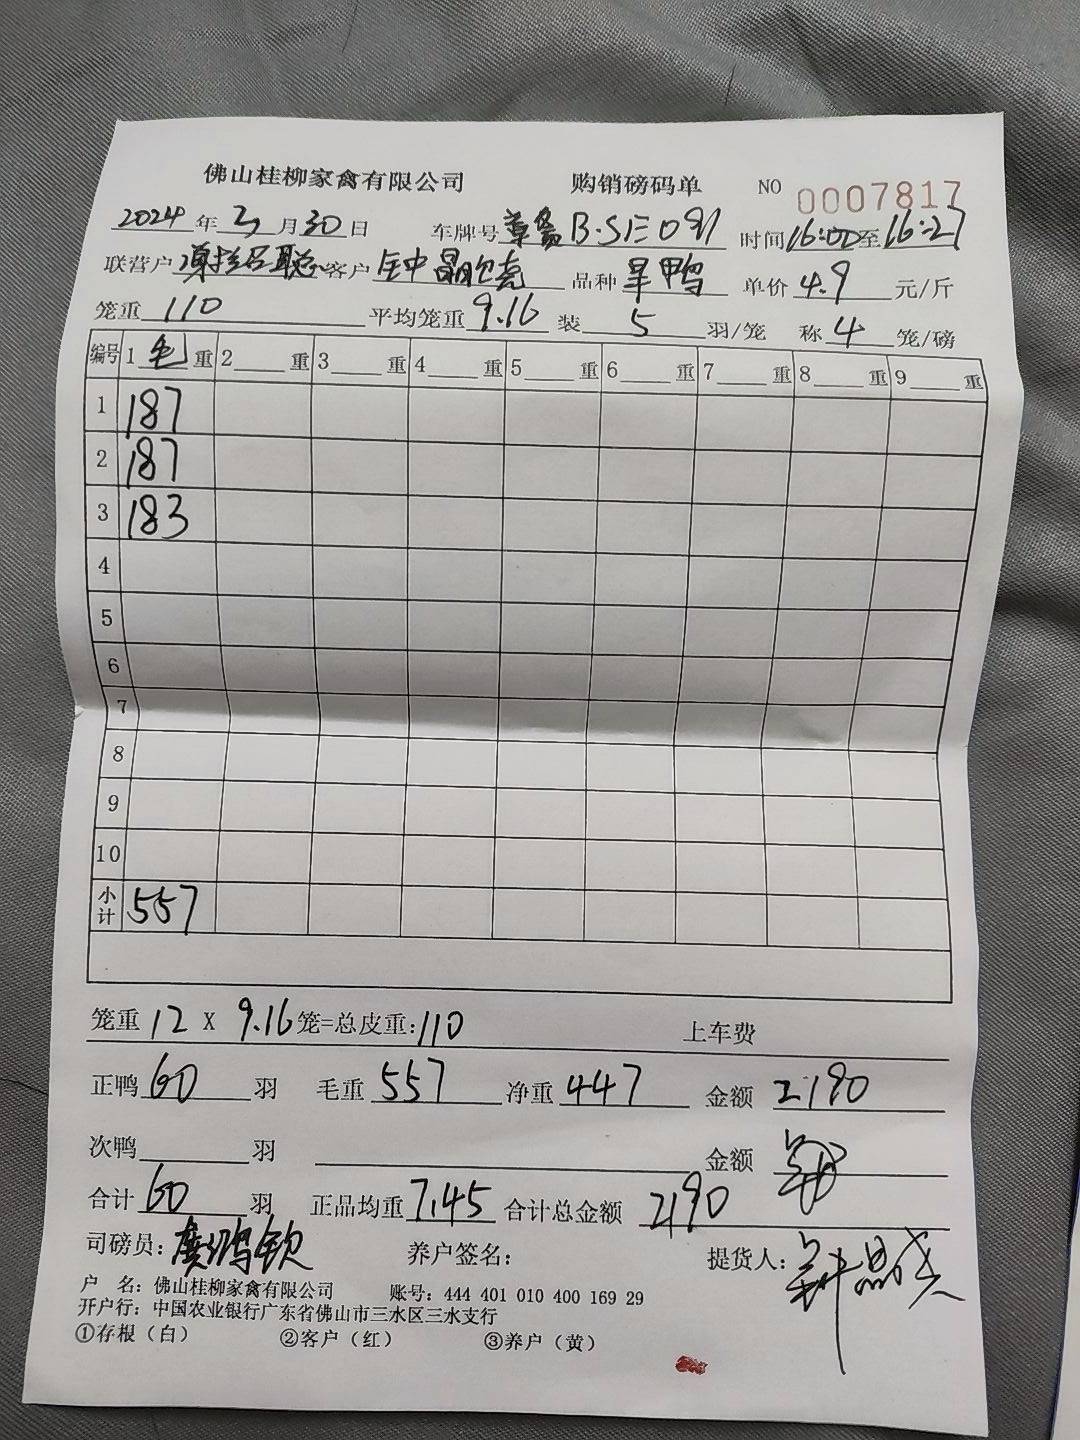 佛山桂柳家禽有限公司 购销磅码单 NO 0007817
2024年3月30日 车牌号 B·SE091 时间16:00至16:27
联营户 客户 钟晶 品种 旱鸭 单价 4.9 元/斤
笼重 110 平均笼重 9.16 装 5 羽/笼 称 4 笼/磅
编号 1 毛 重 2 重 3 重 4 重 5 重 6 重 7 重 8 重 9 重
1 187
2 187
3 183
4
5
6
7
8
9
10
小计 557
笼重 12 X 9.16 笼=总皮重:110 上车费
正鸭 60 羽 毛重 557 净重 447 金额 2190
次鸭 羽 金额
合计 60 羽 正品均重 7.45 合计总金额 2190
司磅员: 鸿钦 养户签名: 提货人:
户 名: 佛山桂柳家禽有限公司 账号: 444 401 010 400 169 29
开户行: 中国农业银行广东省佛山市三水区三水支行
①存根（白） ②客户（红） ③养户（黄）